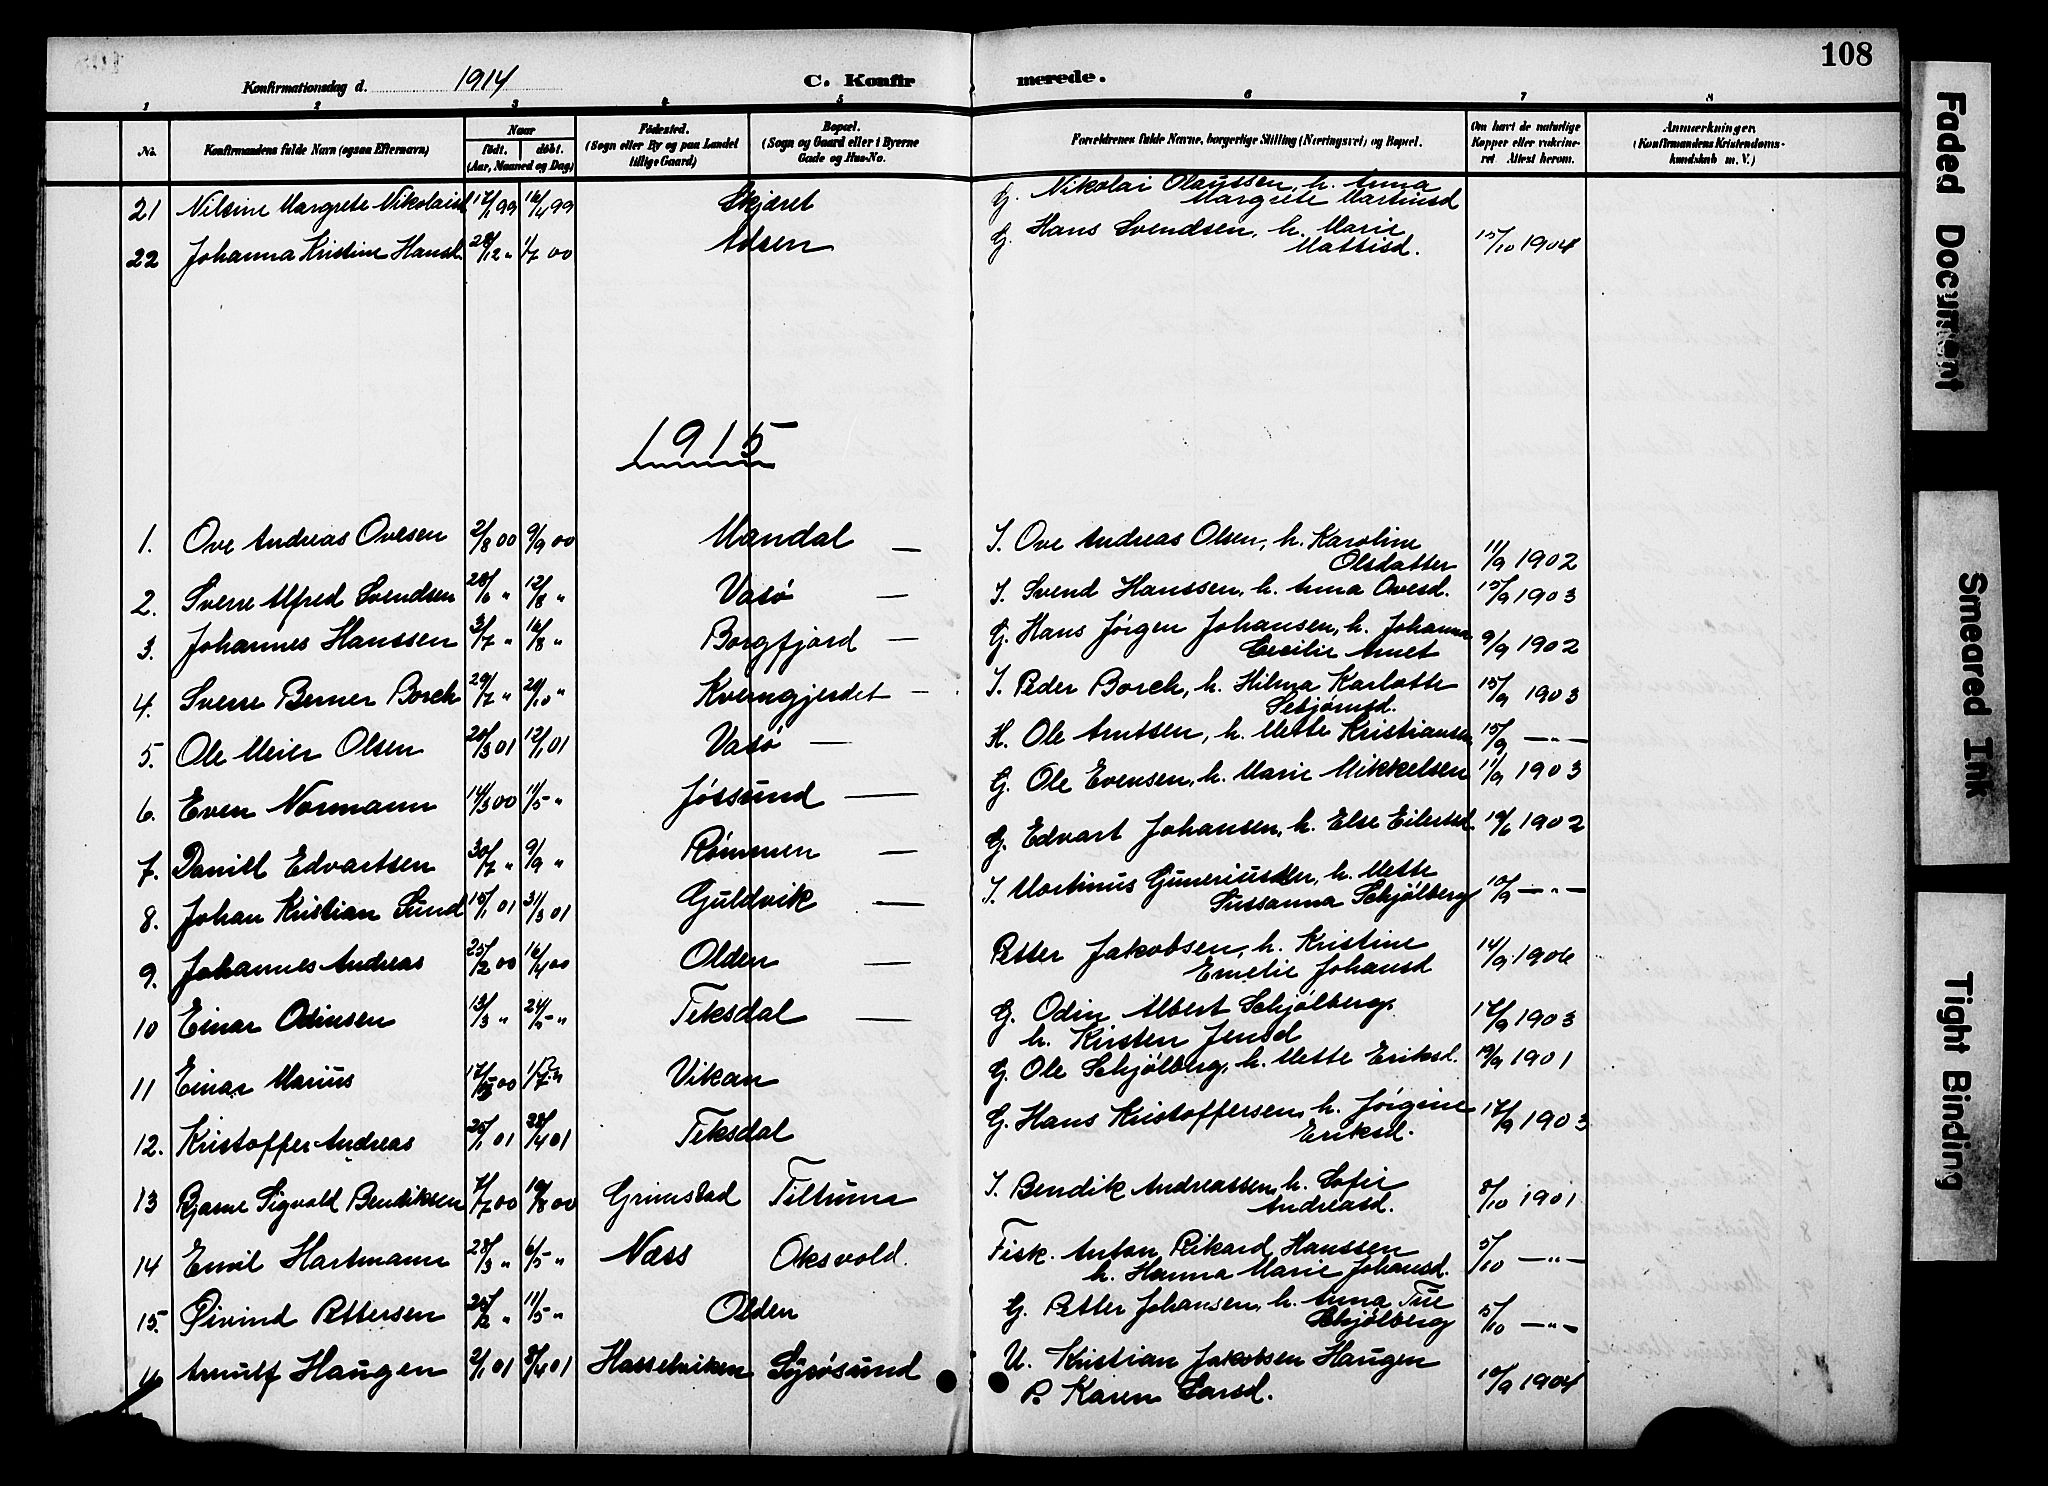 108
Konfirmationsdag d. 1914 C. Konfirmerede.
1 2 3 4 5 6 7 8
No. Konfirmandens fulde Navn (ogsaa Efternavn) Naar født. døbt. (Aar, Maaned og Dag) Fødested. (Sogn eller By og paa Landet tillige Gaard) Bopæl. (Sogn og Gaard eller i Byerne Gade og Hus-No. Forældrenes fulde Navne, borgerlige Stilling (Næringsvei) og Bopæl. Om havt de naturlige Kopper eller vakcineret. Attest herom. Anmærkninger. (Konfirmandens Kristendomskundskab m. V.)
21 Nilsine Margrete Nikolaisd 17/1 99 16/4 99 Skjæret G. Nikolai Olaussen, h. Anna
Margrete Martinsd
22 Johanna Kristine Hansd. 28/12 " 1/7 00 Adsen G. Hans Svendsen, h. Marie
Mattisd. 15/10 1904
1915
1. Ove Andreas Ovesen 2/8 00 9/9 00 Mandal — I. Ove Andreas Olsen, h. Karoline
Olsdatter 11/9 1902
2. Sverre Alfred Svendsen 28/6 " 12/8 " Vasø — I. Svend Hanssen, h. Anna Ovesd. 15/9 1903
3. Johannes Hanssen 3/7 " 16/8 " Borgfjord — G. Hans Jørgen Johansen, h. Johanna
Cecilie Arnet 9/9 1902
4. Sverre Berner Borch 29/7 " 28/10 " Kverngjerdet — I. Peder Borch, h. Hilma Karlotte
15/9 1903
5. Ole Meier Olsen 20/3 01 12/1 01 Vasø — K. Ole Arntsen, h. Mette Kristiansen 15/9 — " —
6. Even Normann 14/3 00 11/5 " Jøssund — G. Ole Evensen, h. Marie Mikkelsen 11/9 1903
7. Daniel Edvartsen 30/7 " 9/9 " Rømmen — G. Edvart Johansen, h. Else Eilertsd 19/6 1902
8. Johan Kristian Sund 15/1 01 31/3 01 Guldvik — I. Martinus Guneriussen, h. Mette
Sussanna Schjølberg 10/9 — " —
9. Johannes Andreas 25/2 00 16/4 00 Olden — Petter Jakobsen, h. Kristine
Emelie Johansd 14/9 1906
10 Einar Odinsen 13/3 " 24/5 " Teksdal — G. Odin Albert Schjølberg,
h. Kirsten Jensd 17/9 1903
11 Einar Marius Vikan G. Ole Schjølberg, h. Mette Eriksd. 19/9 1901
12. Kristoffer Andreas 25/1 01 28/4 01 Teksdal G. Hans Kristoffersen, h. Jørgine
Eriksd. 17/9 1903
13 Bjarne Sigvald Bendiksen 7/7 00 19/8 00 Grimstad Tiltrum I. Bendik Andreassen, h. Sofie
Andreasd. 8/10 1901
14 Emil Hartmann 28/3 " 6/5 " Næss Oksvold. Fisk. Anton Rikard Hanssen
h. Hanna Marie Johansd. 5/10 — " —
15. Øivind Pettersen 25/2 " 11/5 " Olden G. Petter Johansen, h. Anna
Schjølberg 5/10 — " —
Arnulf Haugen 2/1 01 8/4 01 Hasselviken U. Kristian Jakobsen Haugen
P. Karen Larsd. 10/9 1904
Faded Document
Smeared Ink
Tight Binding